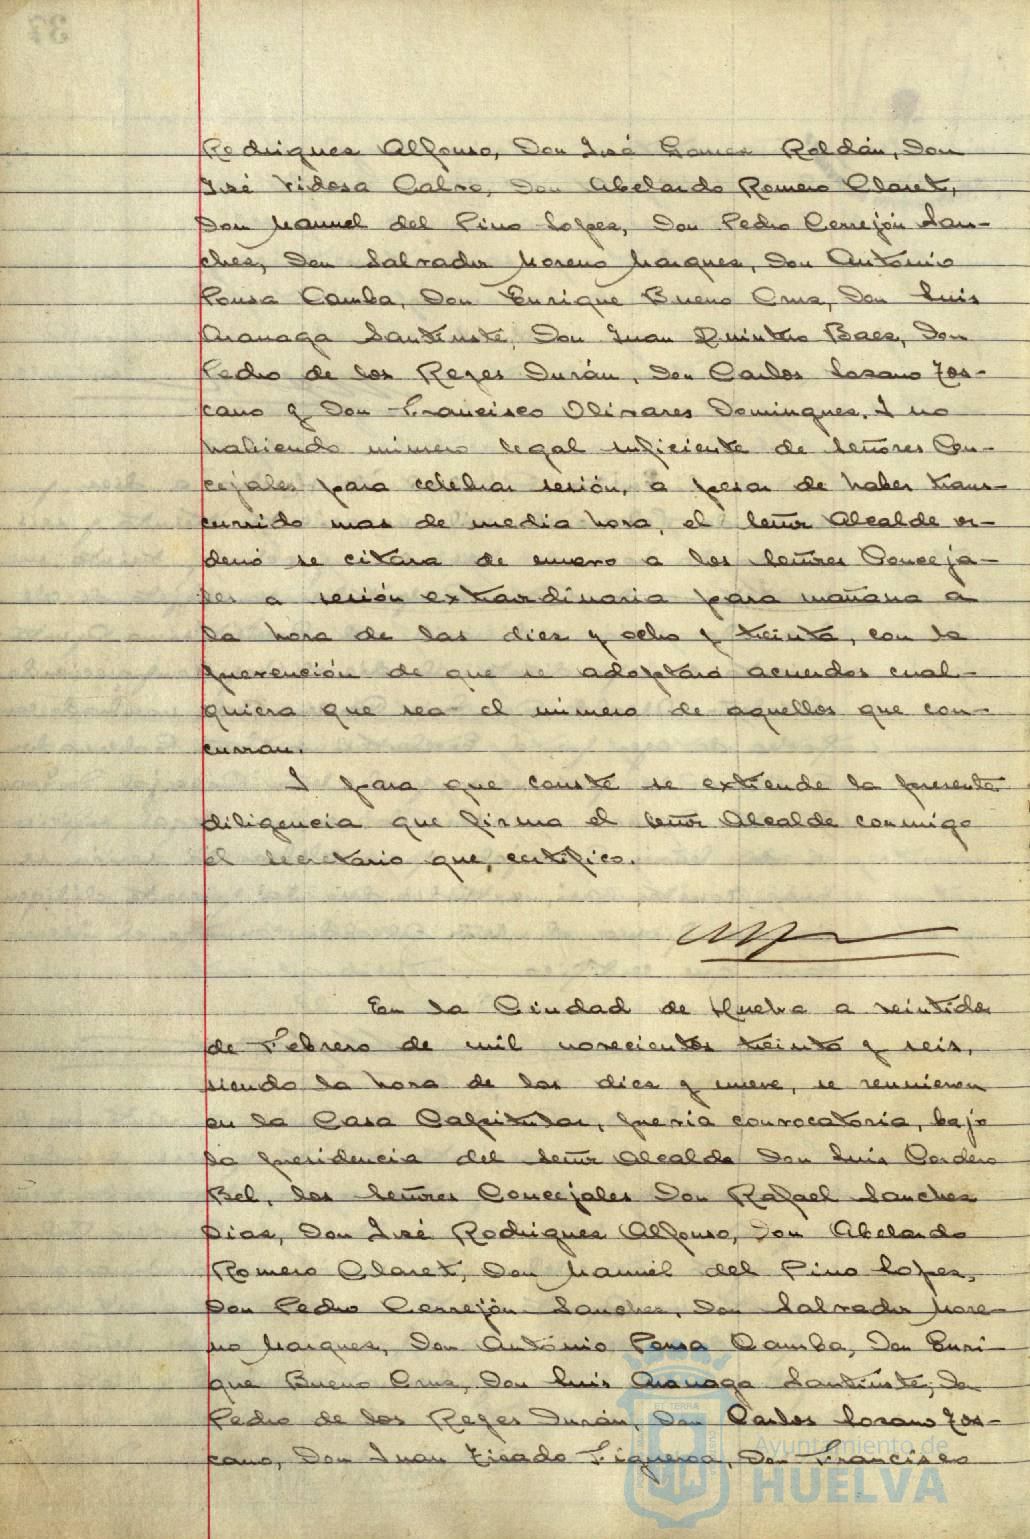 Rodrigues Alfonso, Don José Gomez Roldán, Don
José Vidosa Calvo, Don Abelardo Romero Claret,
Don Manuel del Pino Lopez, Don Pedro Cerrejón San-
chez, Don Salvador Moreno Marquez, Don Antonio
Ponsa Camba, Don Enrique Bueno Cruz, Don Luis
Aranaga Santiuste, Don Juan Quintero Baez, Don
Pedro de los Reyes Durán, Don Carlos Lozano Tos-
cano y Don Francisco Olivares Dominguez. Y no
habiendo número legal suficiente de Señores Con-
cejales para celebrar sesión, a pesar de haber trans-
currido mas de media hora, el Señor Alcalde or-
denó se citara de nuevo a los Señores Conceja-
les a sesión extraordinaria para mañana a
la hora de las diez y ocho y treinta, con la
prevención de que se adoptará acuerdos cual-
quiera que sea el número de aquellos que con-
curran.
Y para que conste se extiende la presente
diligencia que firma el Señor Alcalde conmigo
el secretario que certifico.
En la Ciudad de Huelva a veintidos
de Febrero de mil novecientos treinta y seis,
siendo la hora de las diez y nueve, se reunieron
en la Casa Capitular, previa convocatoria, bajo
la presidencia del Señor Alcalde Don Luis Cordero
Bel, los Señores Concejales Don Rafael Sanchez
Diaz, Don José Rodrigues Alfonso, Don Abelardo
Romero Claret, Don Manuel del Pino Lopez,
Don Pedro Cerrejón Sanchez, Don Salvador More-
no Marquez, Don Antonio Ponsa Camba, Don Enri-
que Bueno Cruz, Don Luis Aranaga Santiuste, Don
Pedro de los Reyes Durán, Don Carlos Lozano Tos-
cano, Don Juan Tirado Figueroa, Don Francisco
Ayuntamiento de
HUELVA